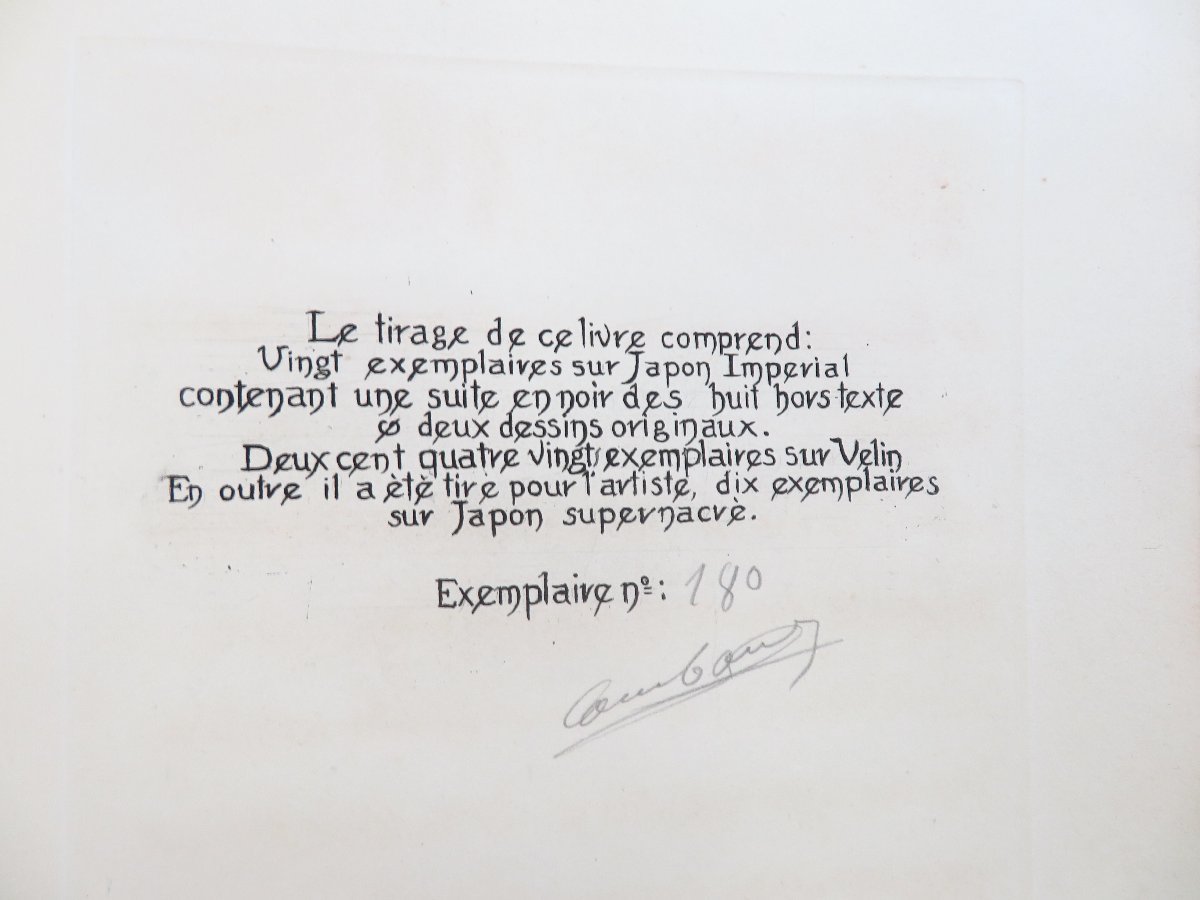 Le tirage de ce livre comprend:
Vingt exemplaires sur Japon Imperial
contenant une suite en noir des huit hors-texte
& deux dessins originaux.
Deux cent quatre vingts exemplaires sur Velin
En outre il a ètè tirè pour l'artiste, dix exemplaires
sur Japon supernacrè.
Exemplaire nº: 180